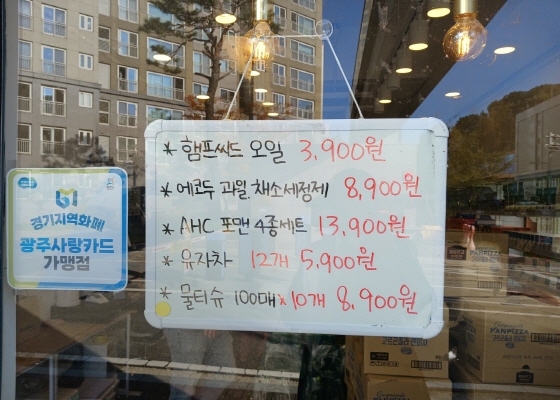 * 햄프씨드 오일 3,900원
* 에코두 과일.채소세정제 8,900원
* AHC 포맨 4종세트 13,900원
* 유자차 12개 5,900원
* 물티슈 100매×10개 8,900원
경기지역화폐
광주사랑카드
가맹점
PANPIZZA
PANPIZZA